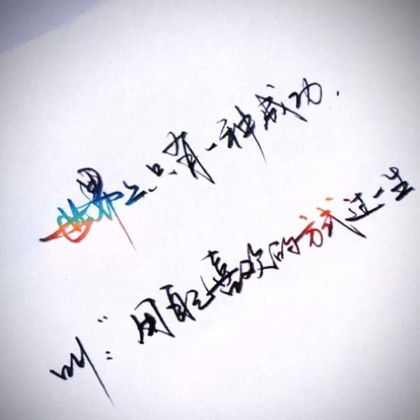 世界上只有一种成功.
叫:“用自己喜欢的方式过一生